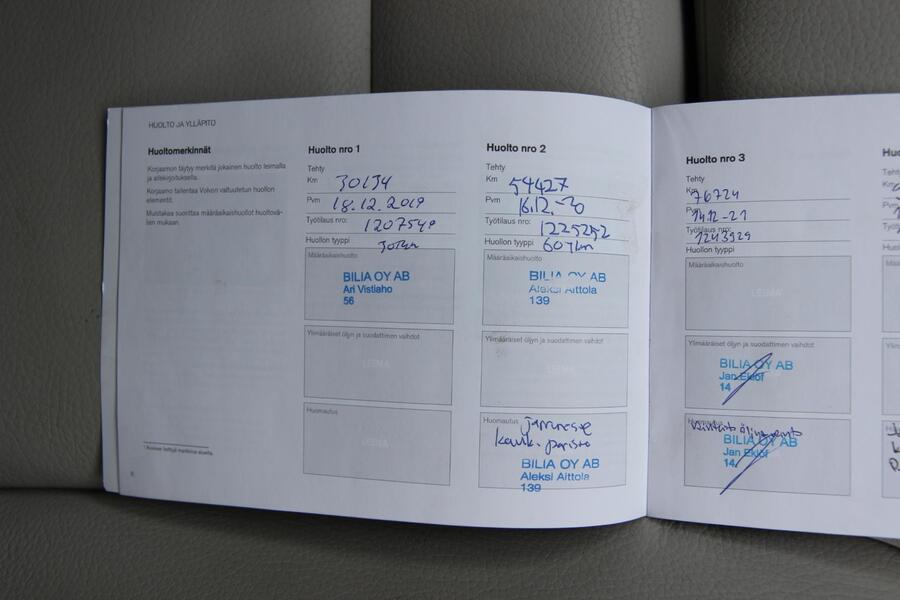 HUOLTO JA YLLÄPITO
Huoltomerkinnät
Korjaamon täytyy merkitä jokainen huolto leimalla
ja allekirjoituksella.
Korjaamo tallentaa Volvon valtuutetun huollon
elementit.
Muistakaa suorittaa määräaikaishuollot huoltovä-
lien mukaan.
6
Huolto nro 1
Tehty
Km 30134
Pvm 18.12.2019
Työtilaus nro:
Huollon tyyppi 30Tkm
Määräaikaishuolto
BILIA OY AB
Ari Vistiaho
56
Ylimääräiset öljyn ja suodattimen vaihdot
LEIMA
Huomautus
LEIMA
Huolto nro 2
Tehty
Km 54427
Pvm 16.12.-20
Työtilaus nro: 1225252
Huollon tyyppi 60Tkm
Määräaikaishuolto
BILIA OY AB
Aleksi Aittola
139
Ylimääräiset öljyn ja suodattimen vaihdot
LEIMA
Huomautus jarruneste
kauk. paristo
BILIA OY AB
Aleksi Aittola
139
Huolto nro 3
Tehty
Km 76724
Pvm 14.12-21
Työtilaus nro: 1243929
Huollon tyyppi
Määräaikaishuolto
LEIMA
Ylimääräiset öljyn ja suodattimen vaihdot
BILIA OY AB
Jan Eklöf
14
Huomautus
BILIA OY AB
Jan Eklöf
14